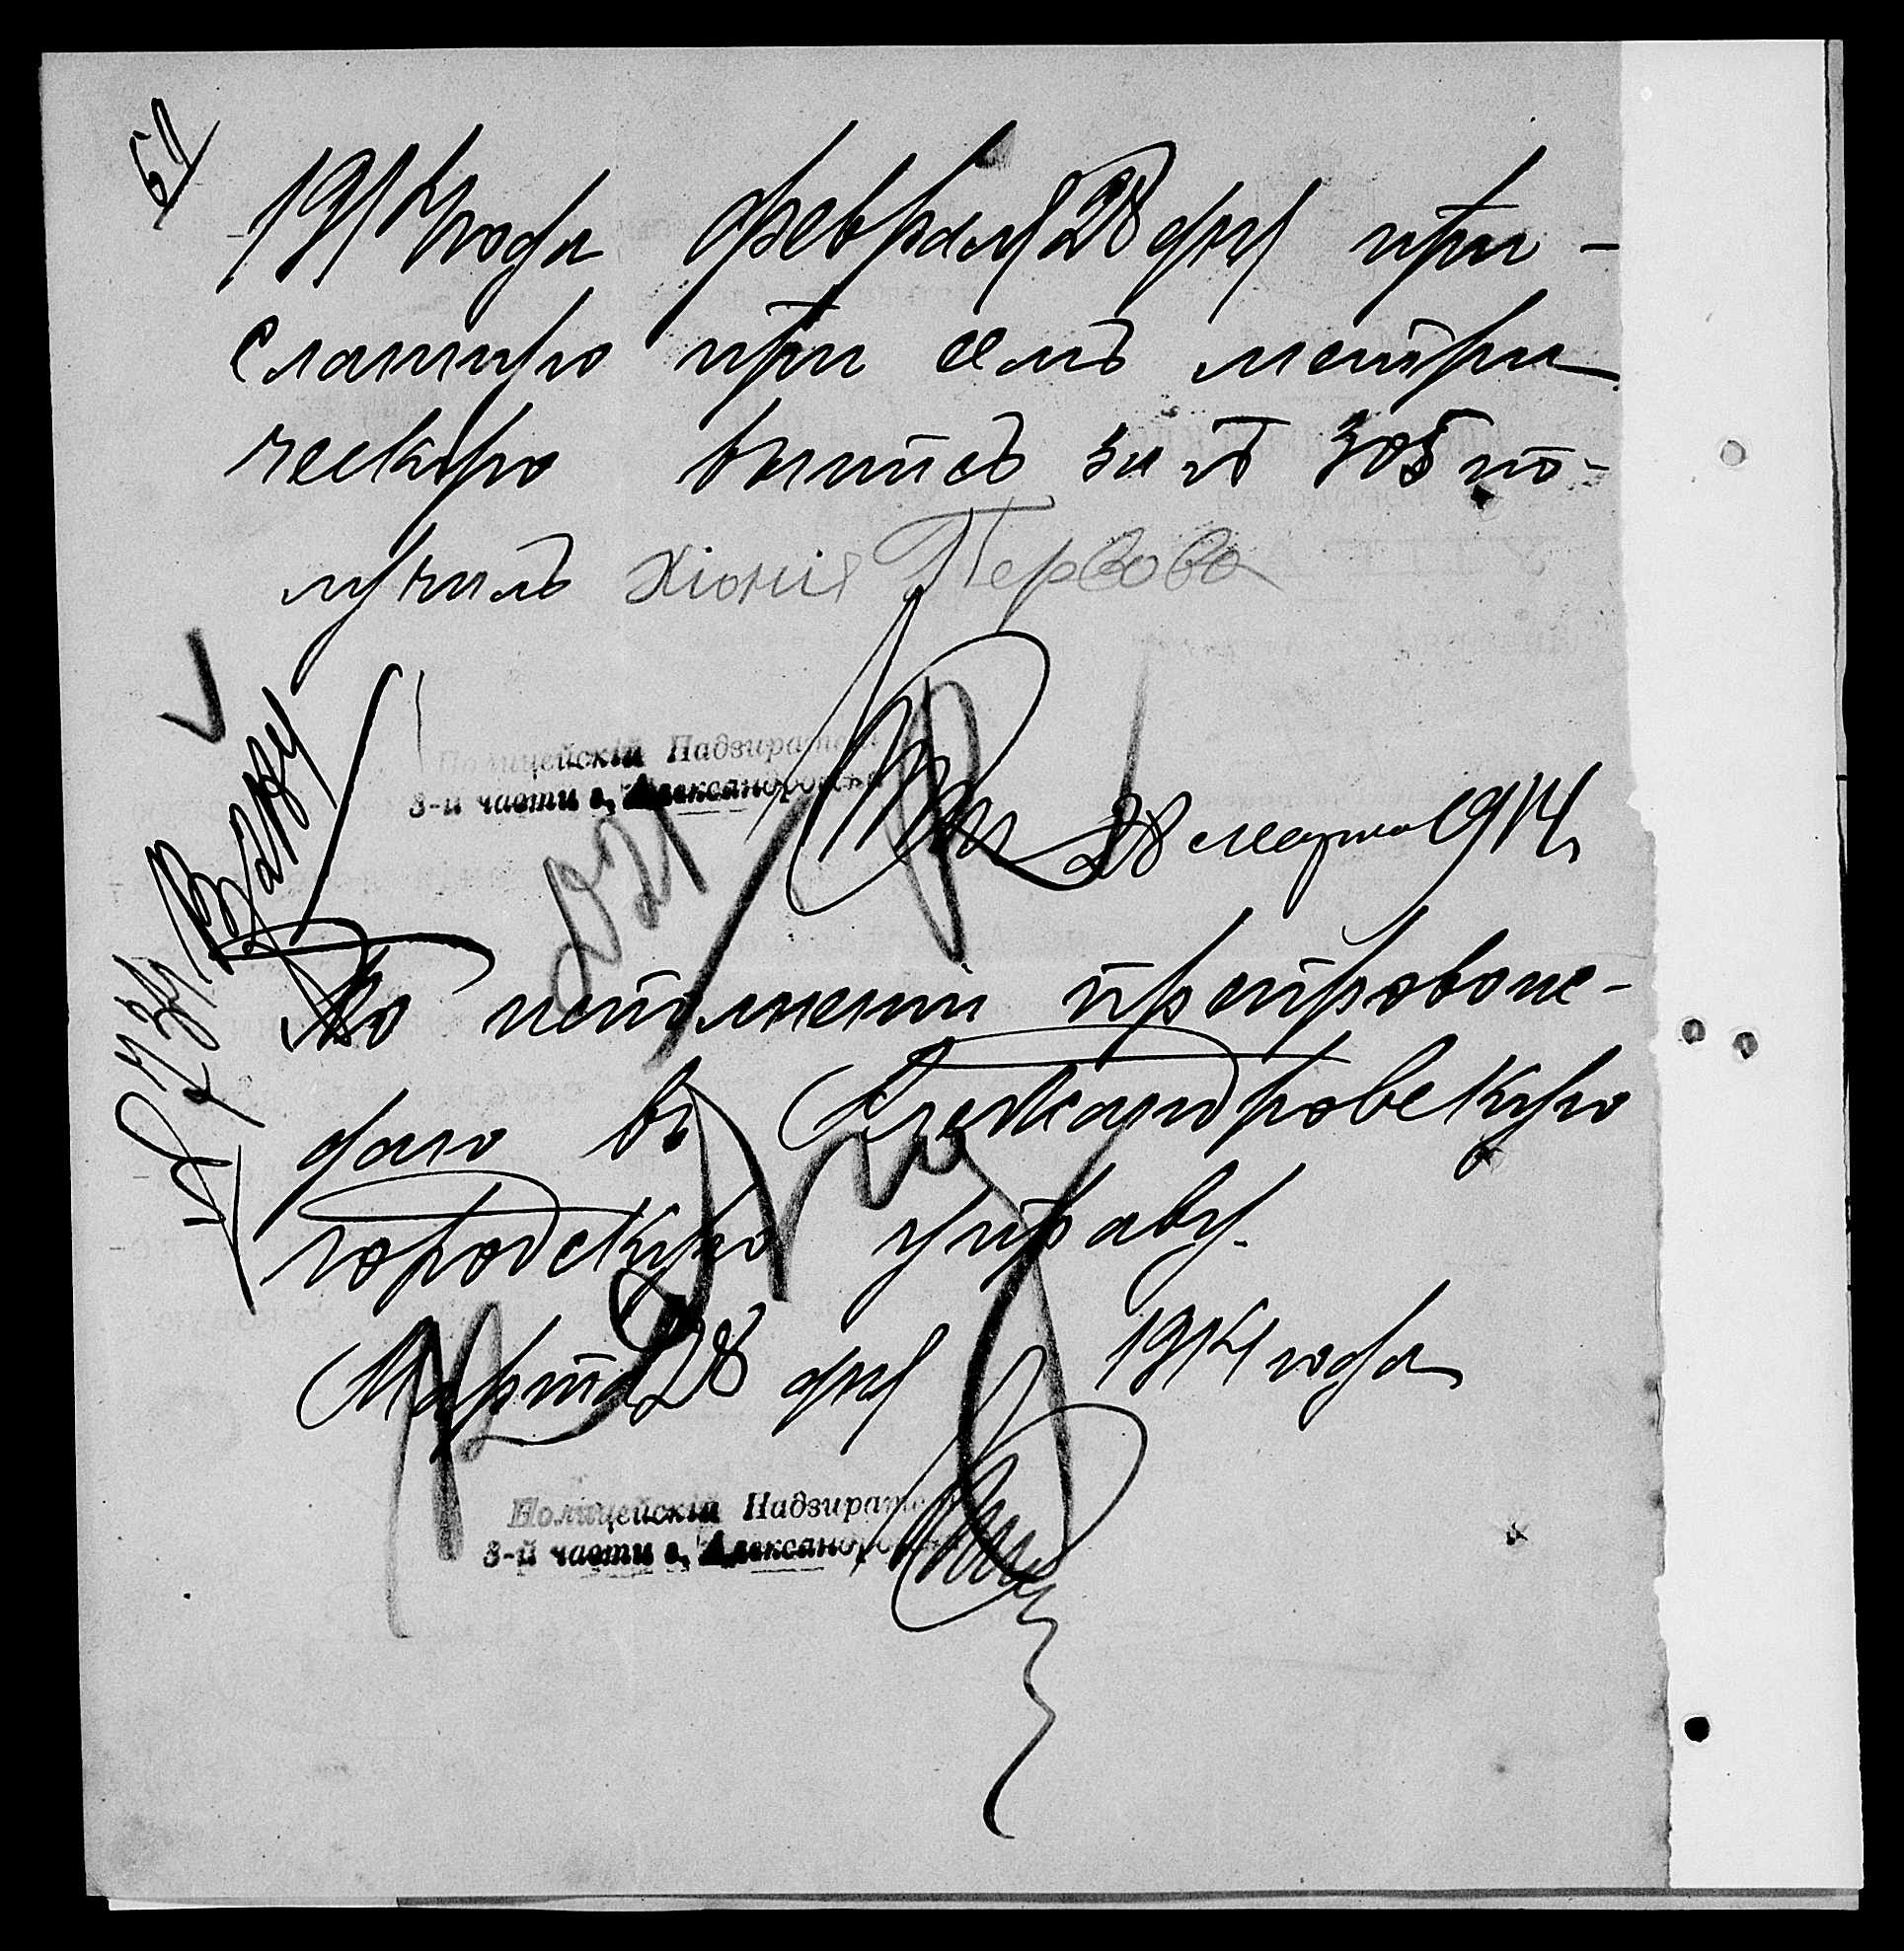 1914 года февраля 28 дня при-
сланную при семъ метри
ческую выпись за № 305 по-
лучилъ Хіонія Первова
Полицейскій Надзиратель
3-й части г. Александровска
28 марта 1914
По исполненіи препровож-
даю въ Александровскую
городскую управу.
Марта 28 дня 1914 года
Полицейскій Надзиратель
3-й части г. Александровска